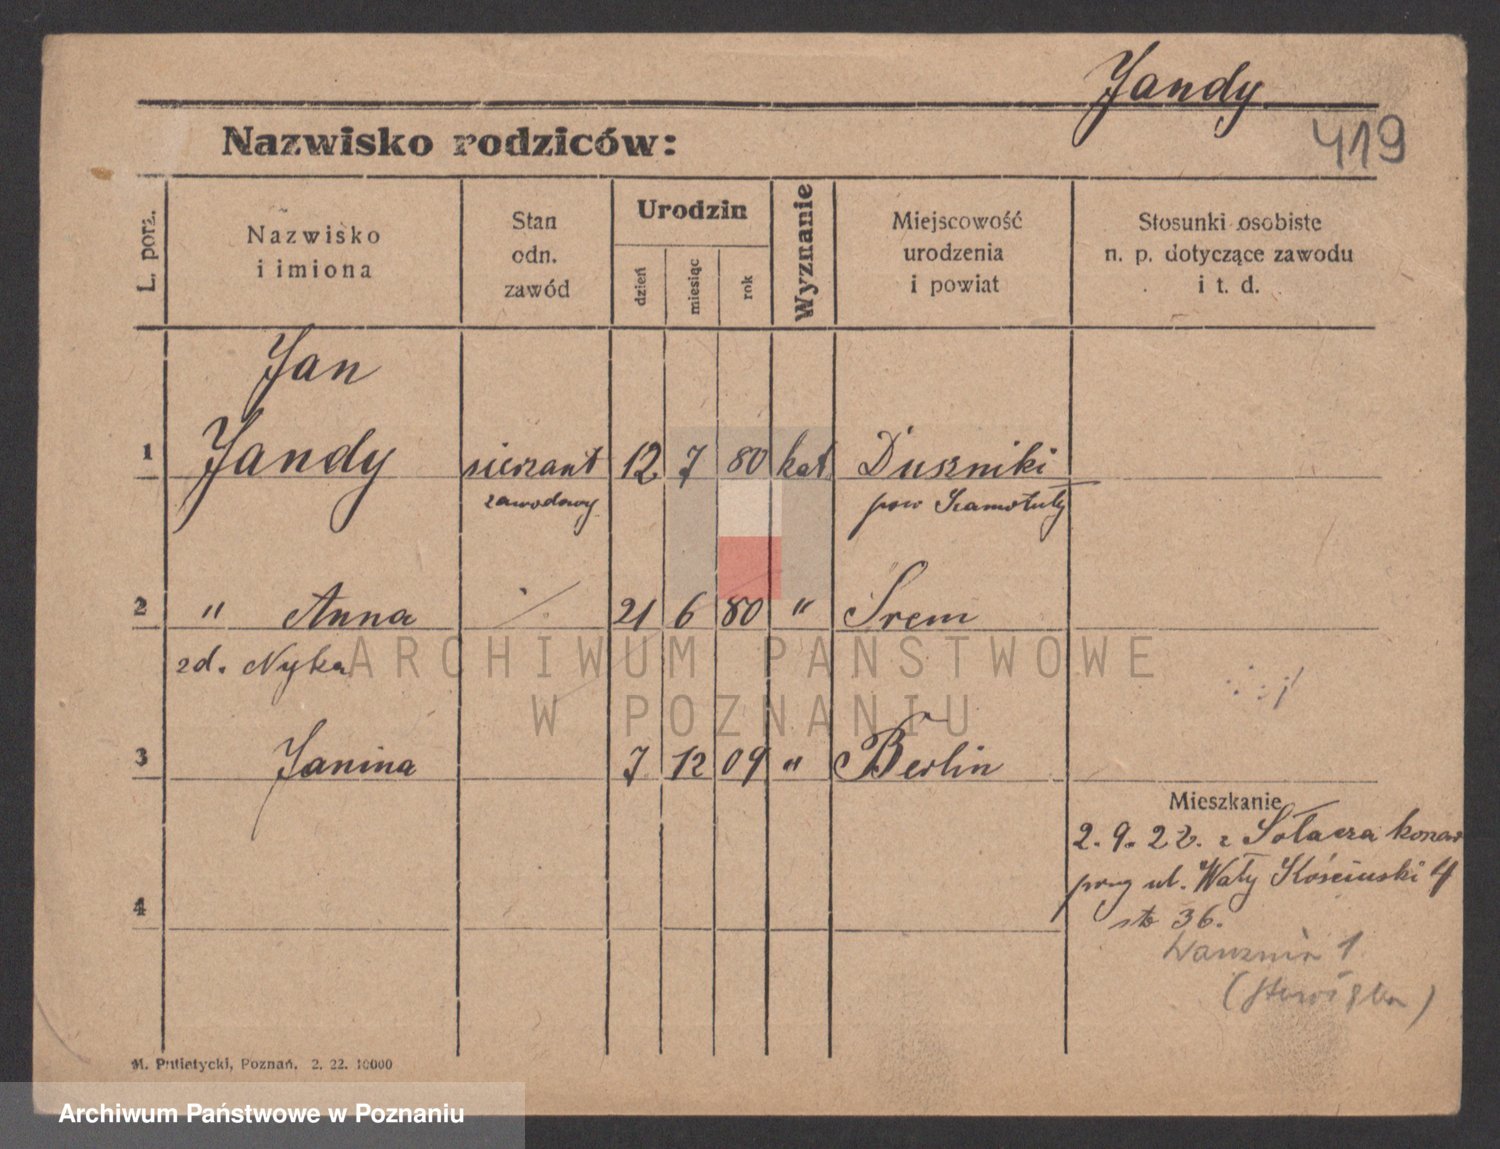 Jandy
419
Nazwisko rodziców:
L. porz.
Nazwisko
i imiona
Stan
odn.
zawód
Urodzin
dzień
miesiąc
rok
Wyznanie
Miejscowość
urodzenia
i powiat
Stosunki osobiste
n. p. dotyczące zawodu
i t. d.
Jan
1 Jandy sierzant 12 7 80 kat Duszniki
zawodowy pow Szamotuły
2 " Anna % 21 6 80 " Srem
zd. Nyka
3 Janina 7 12 09 " Berlin
Mieszkanie
2. 9. 22. z Sołacza koszar
przy ul. Wały Kościuski 4
stb 36.
4
1
M. Putiatycki, Poznań. 2. 22. 10000
ARCHIWUM PAŃSTWOWE
W POZNANIU
Archiwum Państwowe w Poznaniu